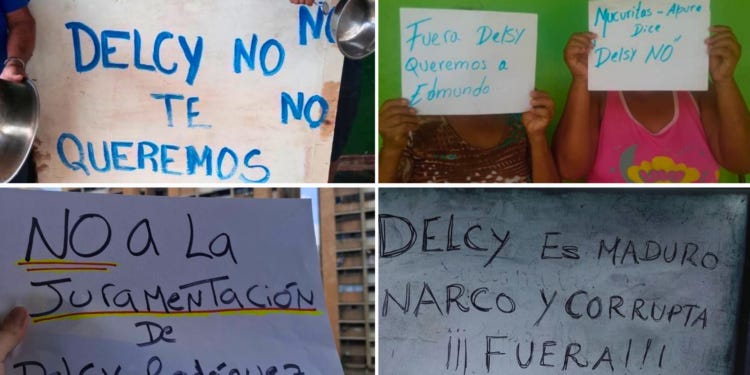 DELCY NO
TE
QUEREMOS
NO
NO
Fuera Delsy
Queremos a
Edmundo
Mucuritas - Apure
Dice
"Delsy NO"
NO a La
Juramentación
De
Delcy Rodríguez
DELCY Es MADURO
NARCO Y CORRUPTA
¡¡¡ FUERA!!!